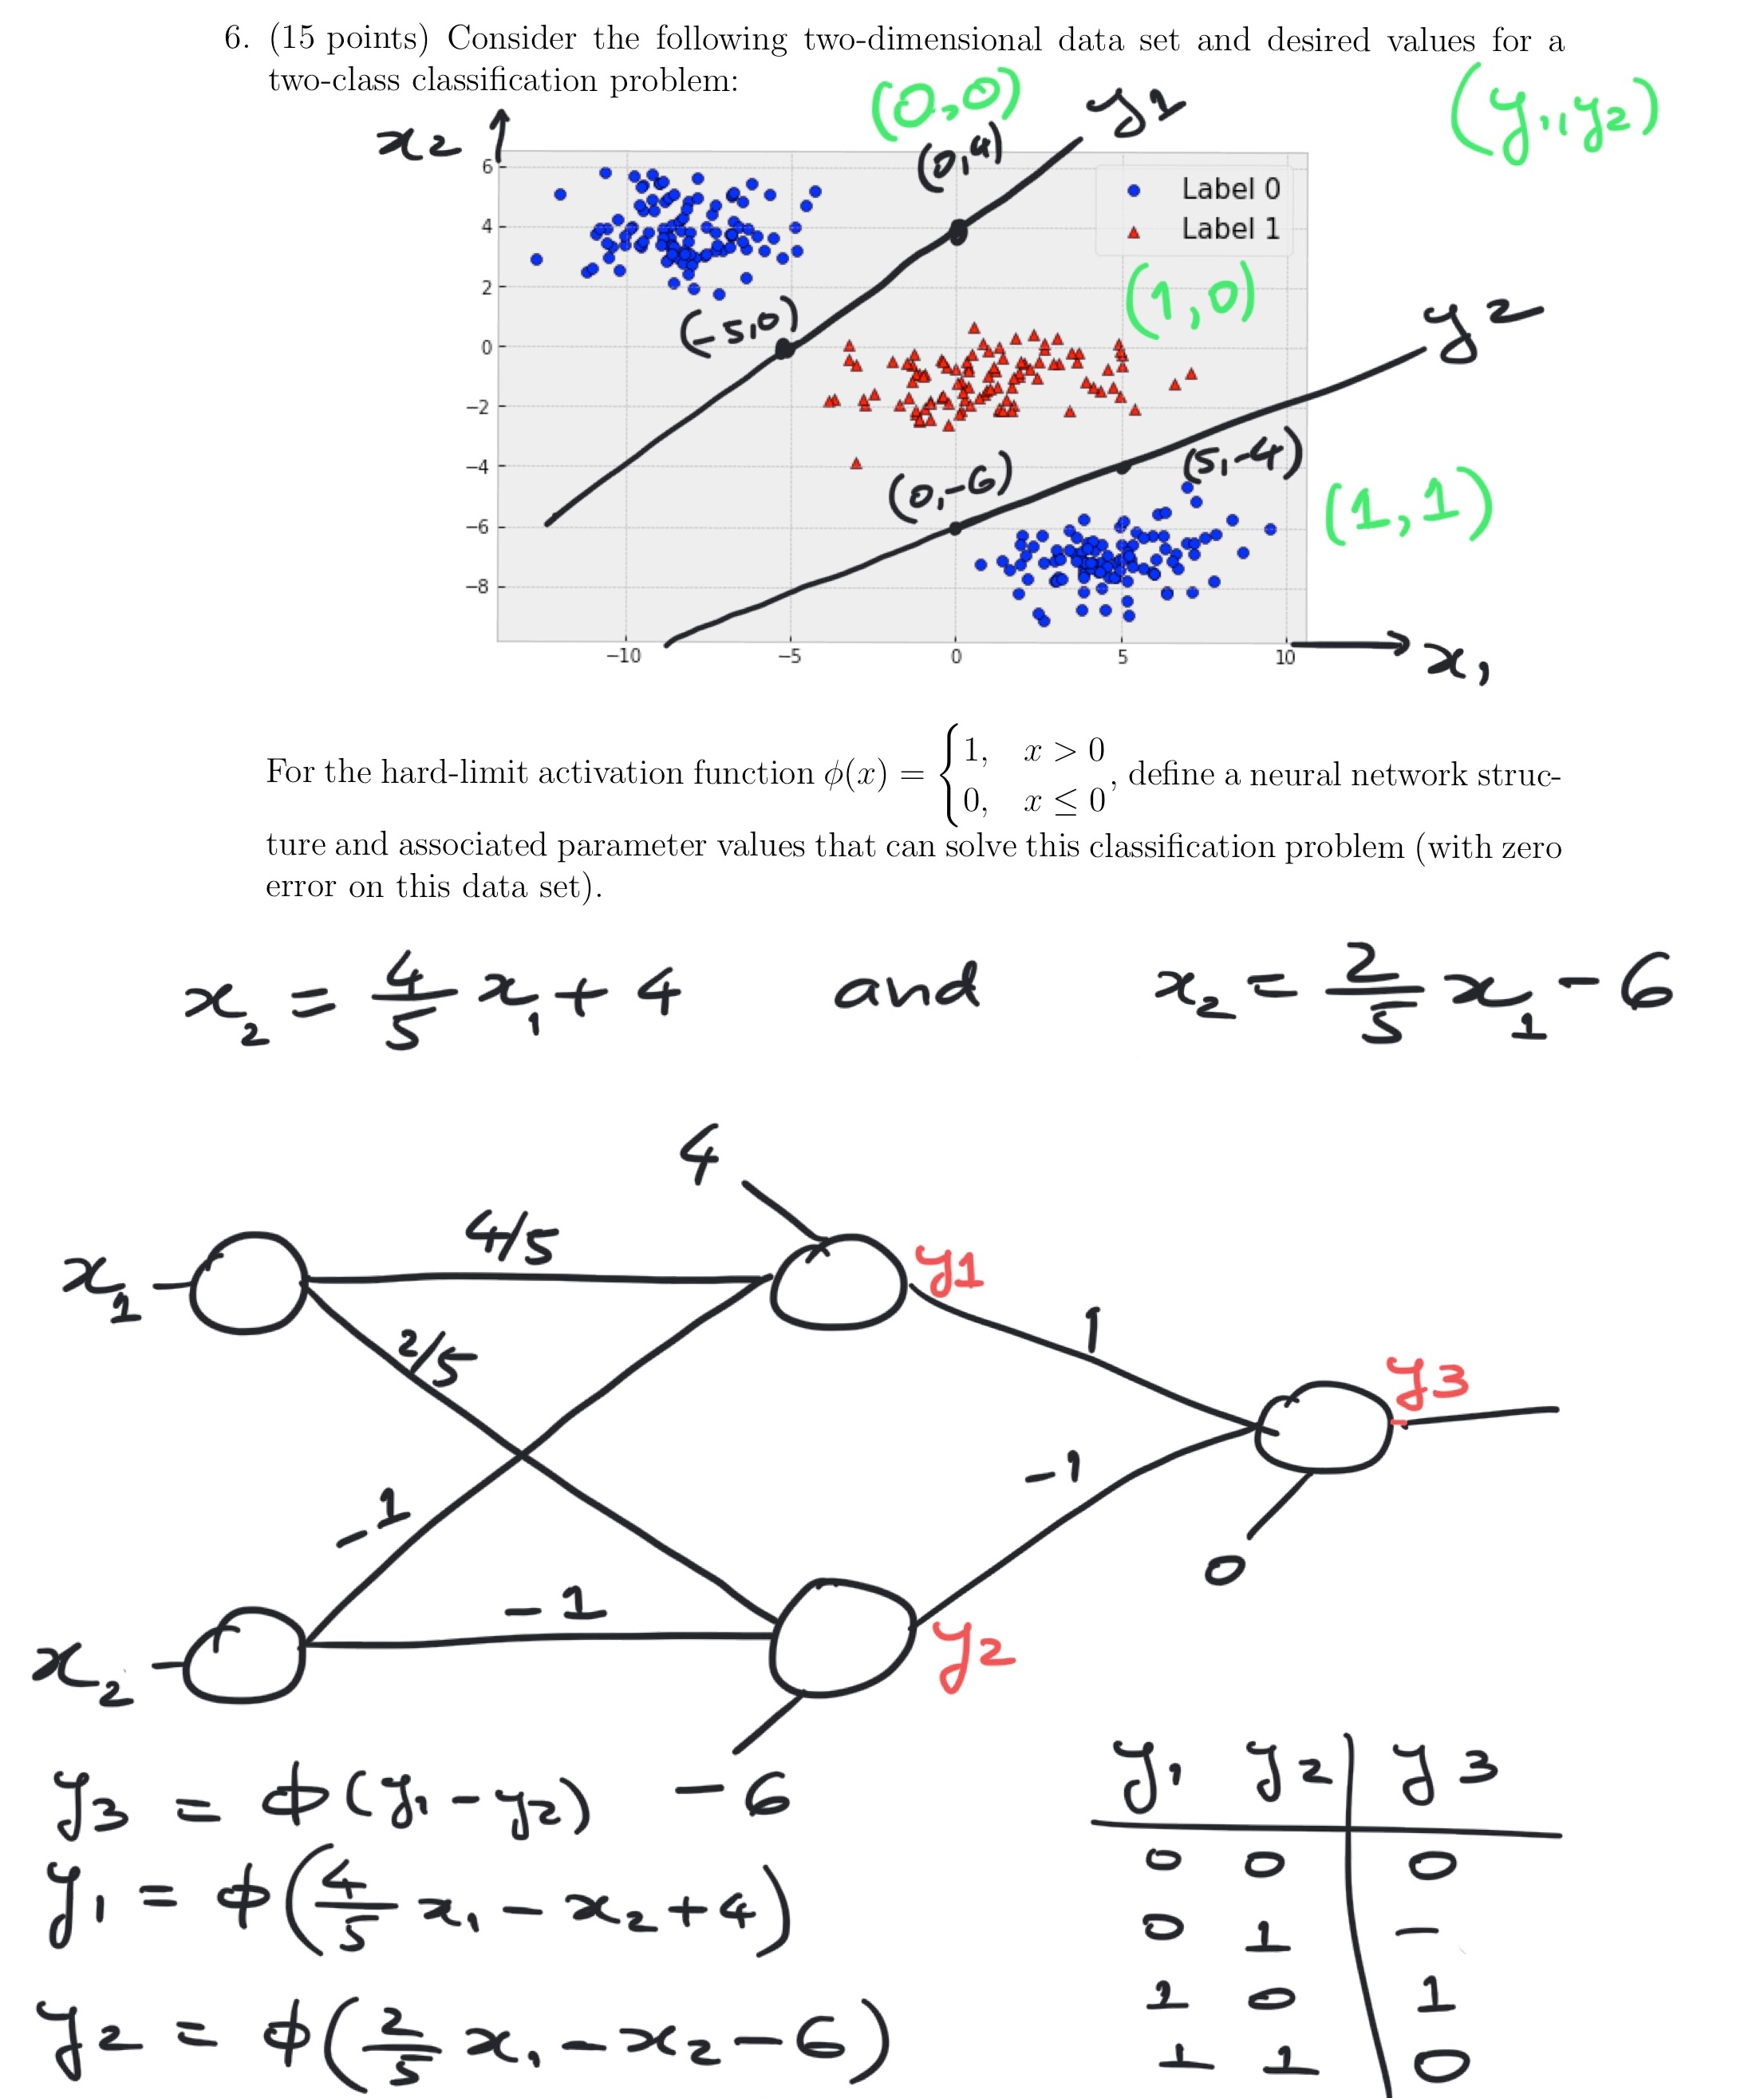 6. (15 points) Consider the following two-dimensional data set and desired values for a
two-class classification problem:
(0,0)
y1
(y1,y2)
x2
(0,4)
Label 0
Label 1
(1,0)
(-5,0)
y2
(5,-4)
(0,-6)
(1,1)
6
4
2
0
−2
−4
−6
−8
−10 −5 0 5 10
x1
For the hard-limit activation function ϕ(x) = { 1, x > 0
0, x ≤ 0 , define a neural network struc-
ture and associated parameter values that can solve this classification problem (with zero
error on this data set).
x2 = 4/5 x1 + 4 and x2 = 2/5 x1 - 6
4
x1 4/5 y1
2/5
1
y3
-1
-1
0
-1
x2 y2
-6
y3 = ϕ(y1 - y2)
y1 = ϕ(4/5 x1 - x2 + 4)
y2 = ϕ(2/5 x1 - x2 - 6)
y1 y2 | y3
0 0 | 0
0 1 | -
1 0 | 1
1 1 | 0